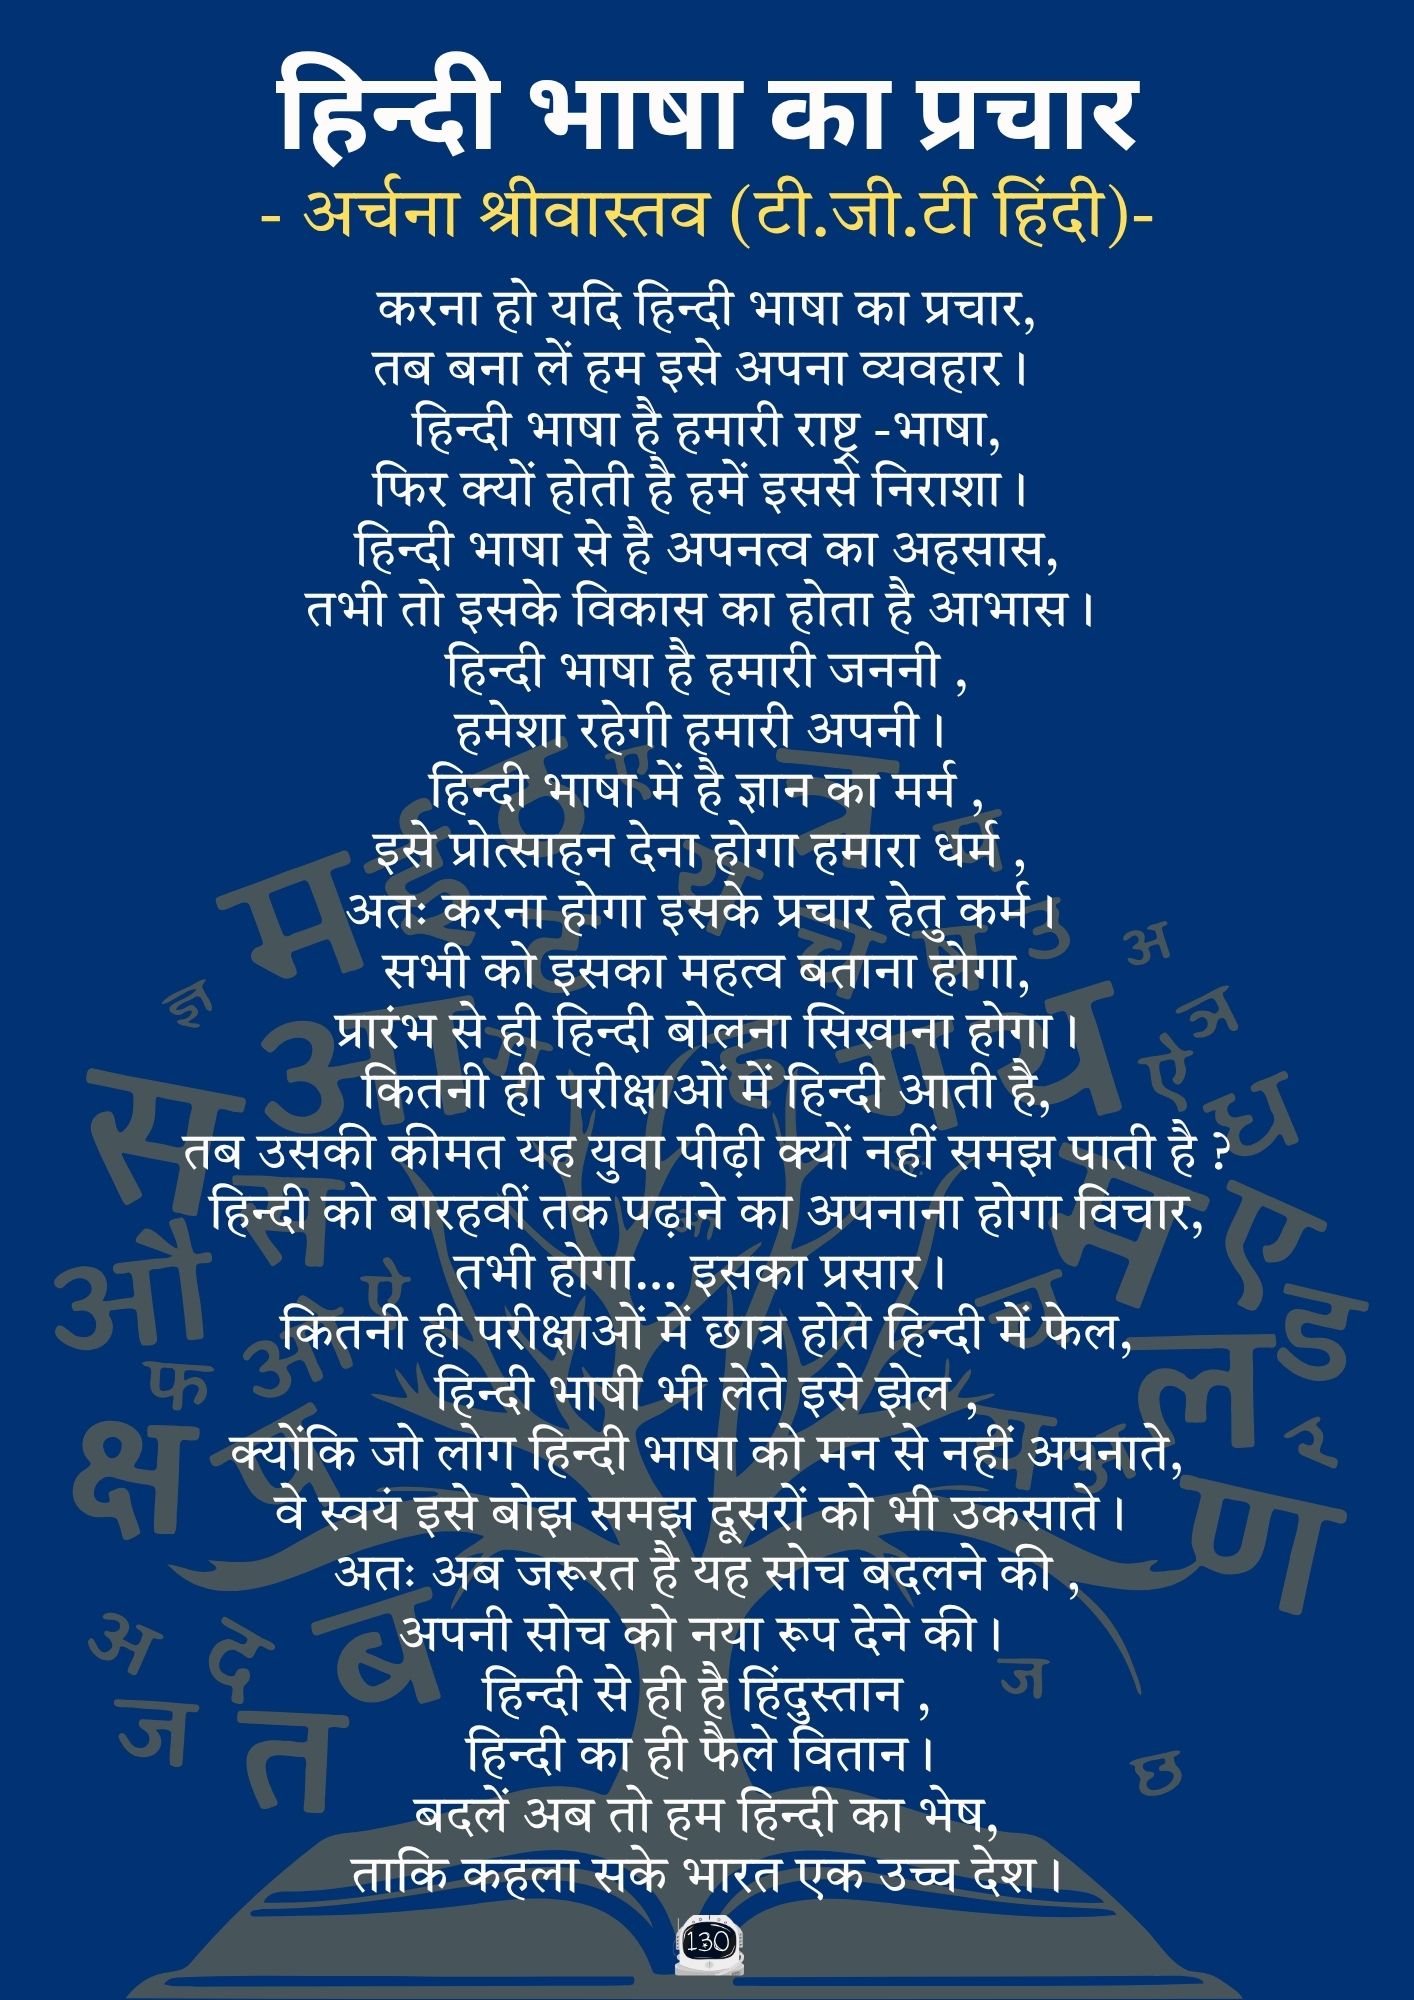 हिन्दी भाषा का प्रचार
- अर्चना श्रीवास्तव (टी.जी.टी हिंदी)-
करना हो यदि हिन्दी भाषा का प्रचार,
तब बना लें हम इसे अपना व्यवहार।
हिन्दी भाषा है हमारी राष्ट्र -भाषा,
फिर क्यों होती है हमें इससे निराशा।
हिन्दी भाषा से है अपनत्व का अहसास,
तभी तो इसके विकास का होता है आभास।
हिन्दी भाषा है हमारी जननी ,
हमेशा रहेगी हमारी अपनी।
हिन्दी भाषा में है ज्ञान का मर्म ,
इसे प्रोत्साहन देना होगा हमारा धर्म ,
अतः करना होगा इसके प्रचार हेतु कर्म।
सभी को इसका महत्व बताना होगा,
प्रारंभ से ही हिन्दी बोलना सिखाना होगा।
कितनी ही परीक्षाओं में हिन्दी आती है,
तब उसकी कीमत यह युवा पीढ़ी क्यों नहीं समझ पाती है ?
हिन्दी को बारहवीं तक पढ़ाने का अपनाना होगा विचार,
तभी होगा... इसका प्रसार।
कितनी ही परीक्षाओं में छात्र होते हिन्दी में फेल,
हिन्दी भाषी भी लेते इसे झेल ,
क्योंकि जो लोग हिन्दी भाषा को मन से नहीं अपनाते,
वे स्वयं इसे बोझ समझ दूसरों को भी उकसाते।
अतः अब जरूरत है यह सोच बदलने की ,
अपनी सोच को नया रूप देने की।
हिन्दी से ही है हिंदुस्तान ,
हिन्दी का ही फैले वितान।
बदलें अब तो हम हिन्दी का भेष,
ताकि कहला सके भारत एक उच्च देश।
130